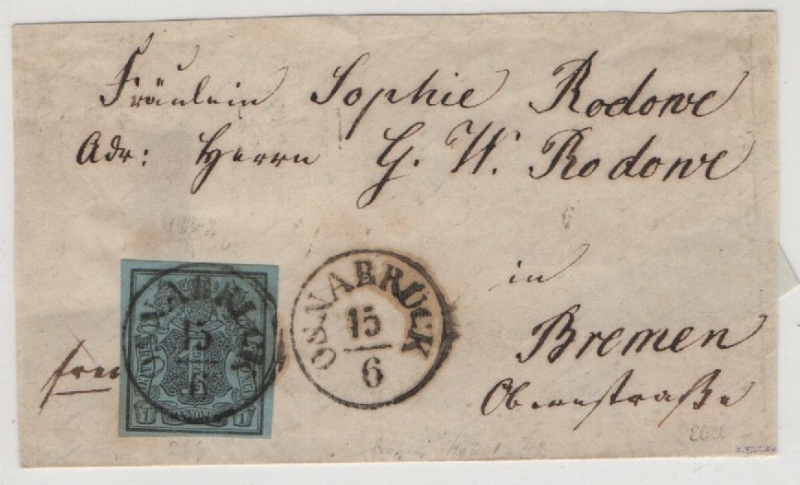 Fräulein Sophie Rodowe
Adr: Herrn G. W. Rodowe
in
Bremen
Obernstraße
OSNABRÜCK
15
6
OSNABRÜCK
15
6
1
HANNOVER
1